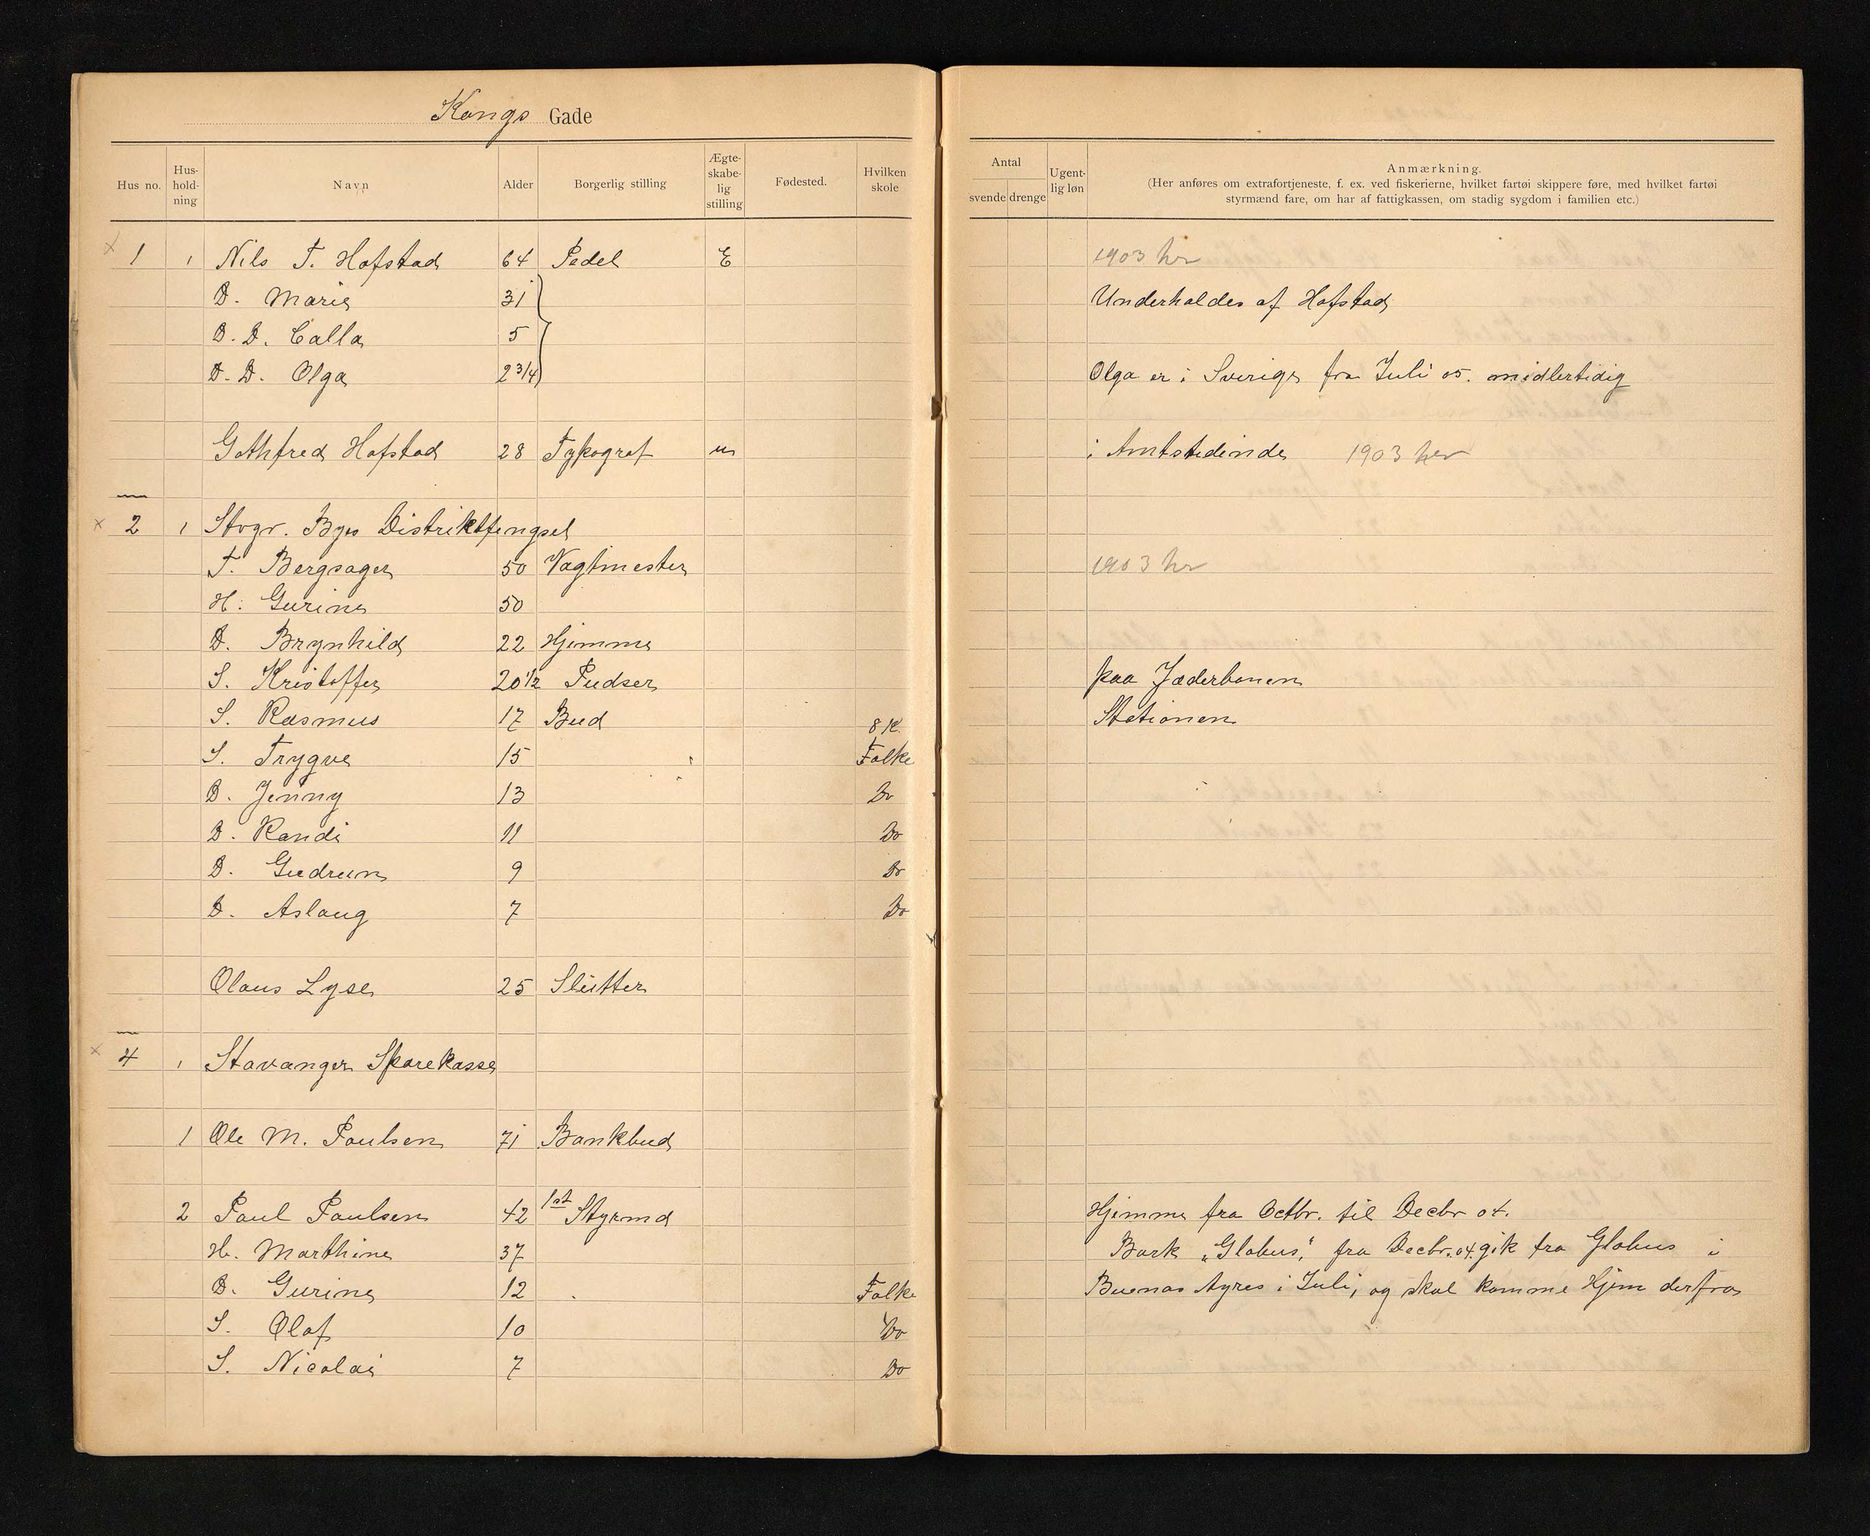 Kongs Gade
Hus no. Hus-hold-ning Navn Alder Borgerlig stilling Ægte-skabe-lig stilling Fødested. Hvilken skole Antal svende drenge Ugent-lig løn Anmærkning.
(Her anføres om extrafortjeneste, f. ex. ved fiskerierne, hvilket fartøi skippere føre, med hvilket fartøi
styrmænd fare, om har af fattigkassen, om stadig sygdom i familien etc.)
x 1 1 Nils T. Hofstad 64 Pedel E 1903 her
D. Marie 31 Underholdes af Hofstad
D. D. Calla 5
D. D. Olga 2 3/4 Olga er i Sverige fra Juli 05. midlertidig
Gothfred Hofstad 28 Typograf u i Amtstidende 1903 her
x 2 1 Stvgr. Bys Distriktsfengsel
T. Bergsager 50 Vagtmester 1903 her
H. Gurine 50
D. Brynhild 22 Hjemme
S. Kristoffer 20 1/2 Pudser paa Jæderbanen
S. Rasmus 17 Bud Stationen
S. Trygve 15 8 Kl. Folke
D. Jenny 13 Do
D. Randi 11 Do
D. Gudrun 9 Do
D. Aslaug 7 Do
Olaus Lyse 25 Slutter
x 4 1 Stavanger Sparekasse
1 Ole M. Paulsen 71 Bankbud
2 Paul Paulsen 42 1st Styrmd Hjemme fra Octbr. til Decbr 04.
H. Marthine 37 Bark "Globus", fra Decbr. 04. gik fra Globus i
D. Gurine 12 Folke Buenos Ayres i Juli, og skal komme Hjem derfra
S. Olaf 10 Do
S. Nicolai 7 Do